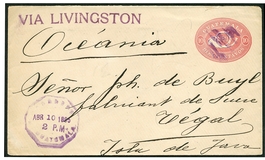 VIA LIVINGSTON
Océania
GUATEMALA
Señor Ph. de Buyl
fabricant de sucre
Tegal
Isla de Java
ABR 20 1891
2 P.M.
GUATEMALA